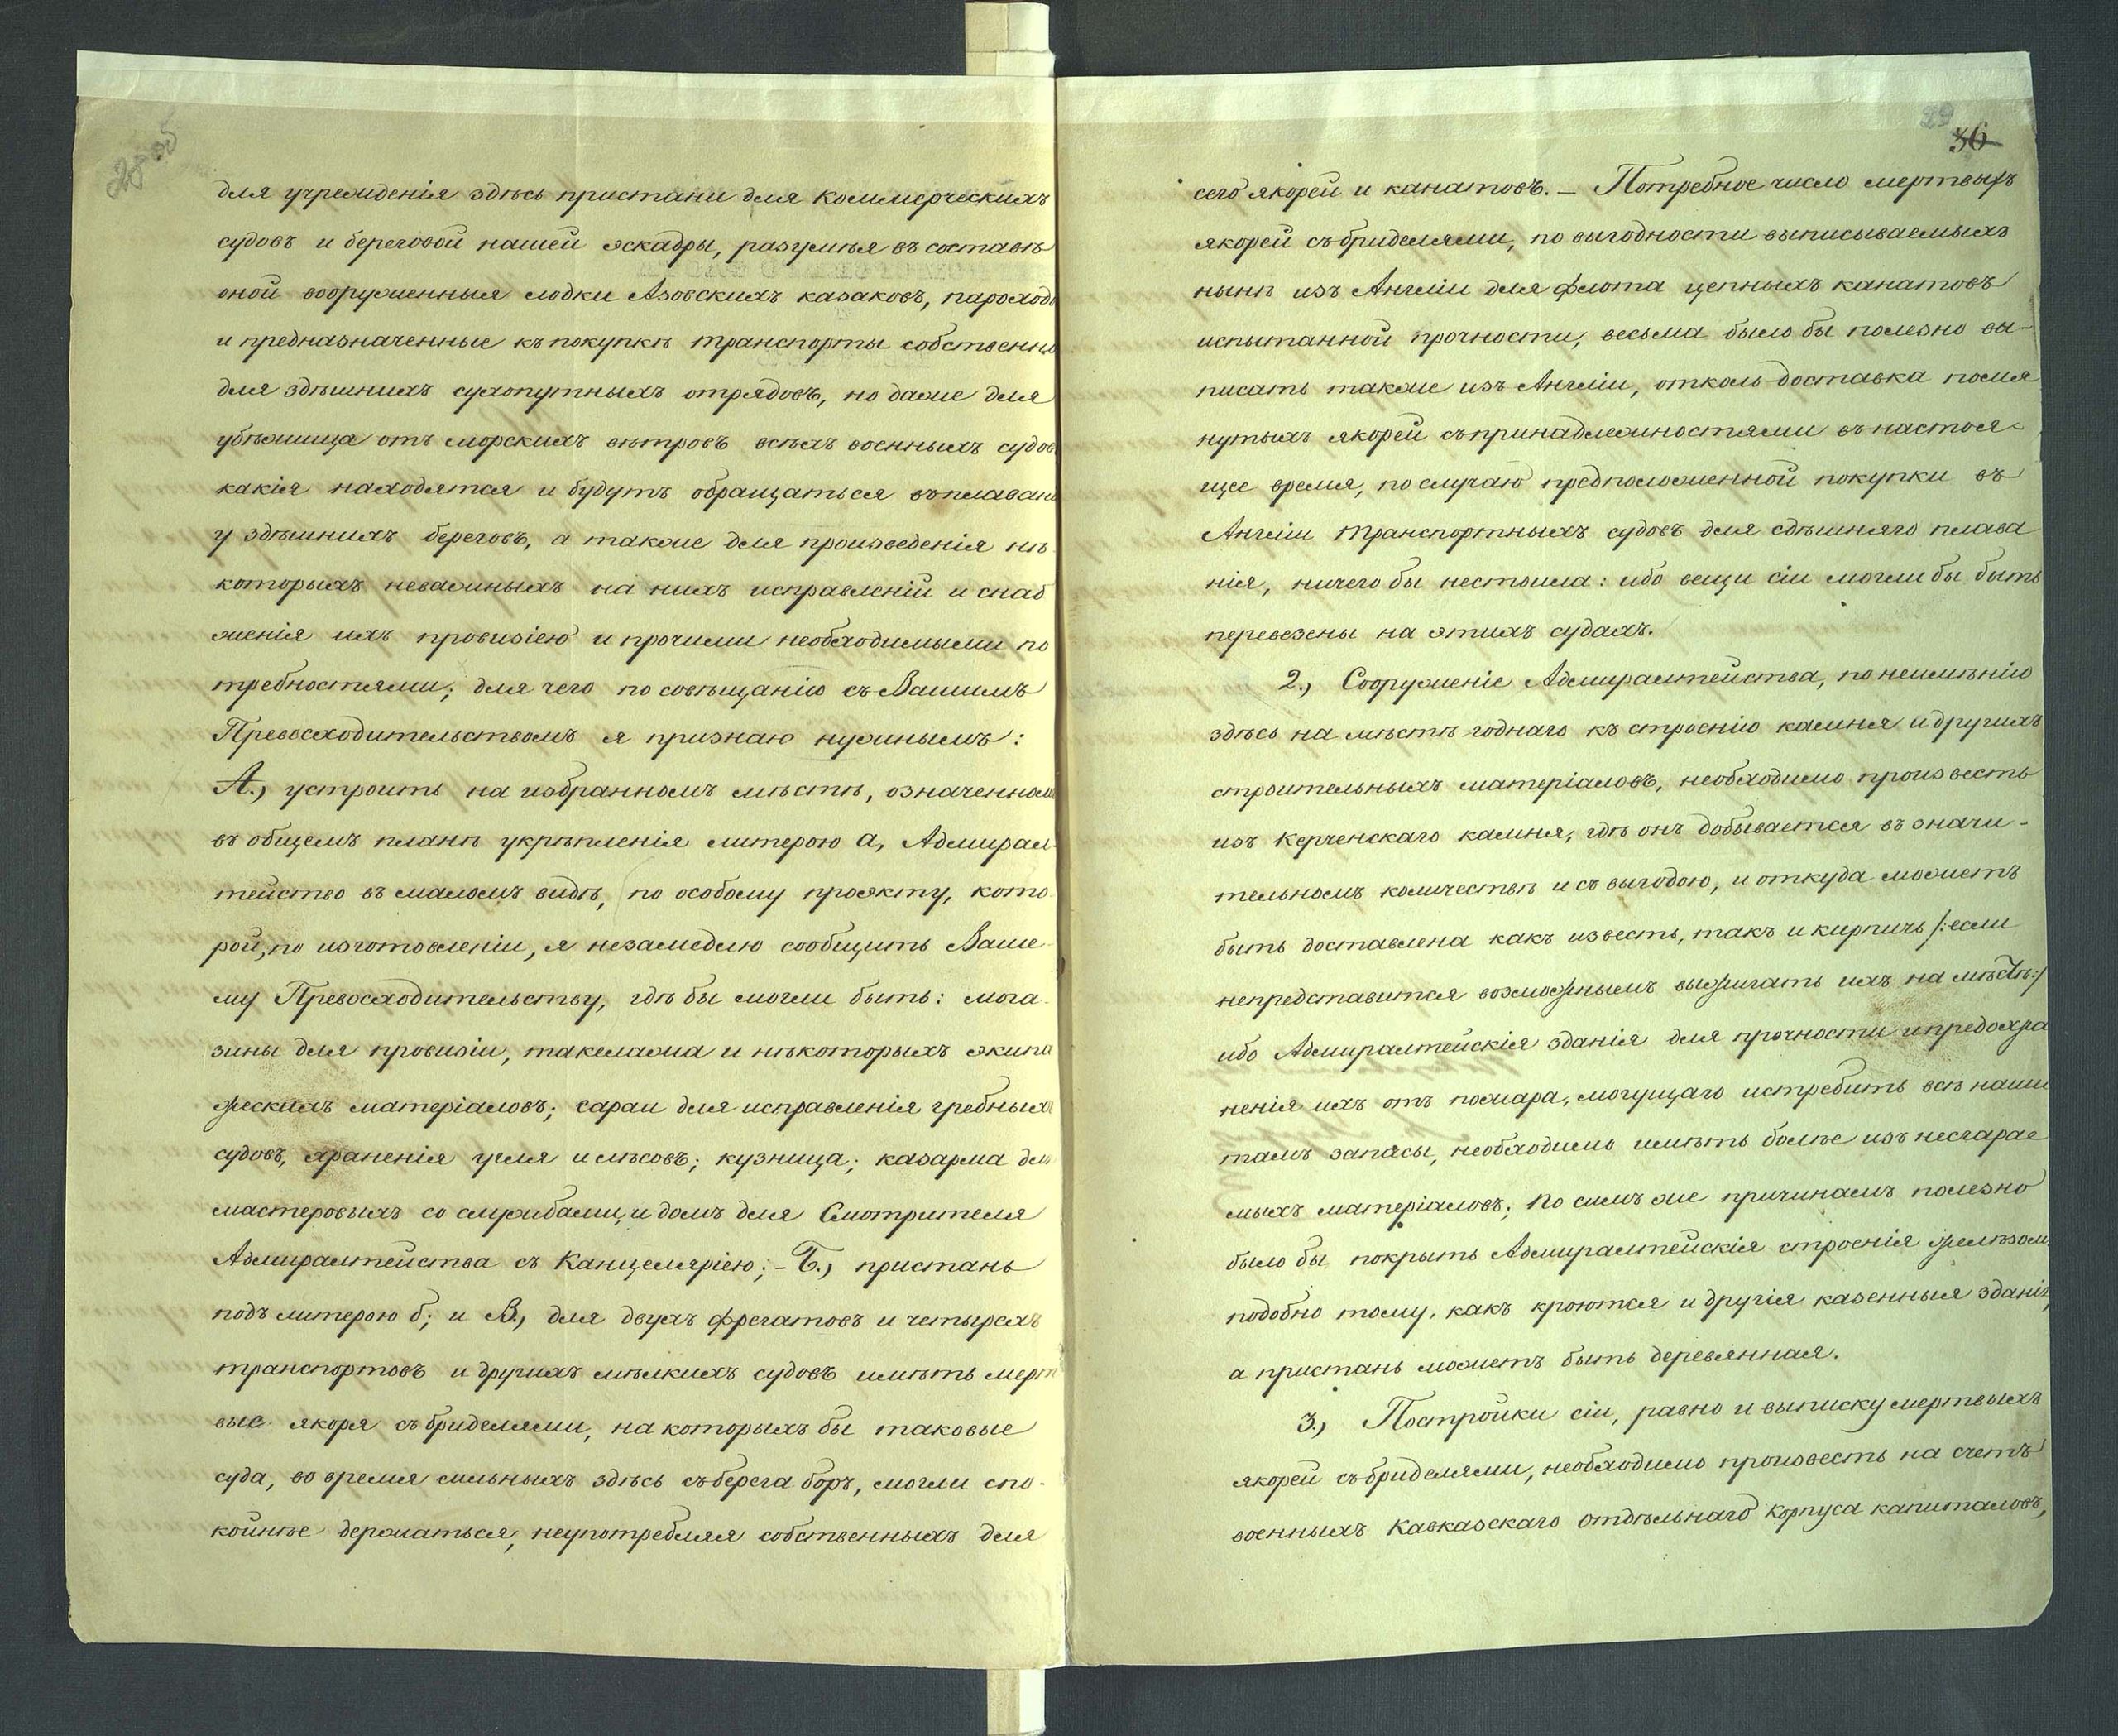 28 об
для учрежденія здѣсь пристани для Коммерческихъ
судовъ и береговой нашей эскадры, разумѣя въ составѣ
оной вооруженныя лодки Азовскихъ казаковъ, пароходы
и предназначенные къ покупкѣ транспорты собственно
для здѣшнихъ сухопутныхъ отрядовъ, но даже для
убѣжища отъ морскихъ вѣтровъ всѣхъ военныхъ судовъ
какія находятся и будутъ обращаться въ плавані
у здѣшнихъ береговъ, а также для произведенія нѣ
которыхъ неважныхъ на нихъ исправленій и снаб
женія ихъ провизіею и прочими необходимыми по
требностями; для чего по совѣщанію съ Вашимъ
Превосходительствомъ я признаю нужнымъ:
А.) устроить на избранномъ мѣстѣ, означенномъ
въ общемъ планѣ укрѣпленія литерою а, Адмирал
тейство въ маломъ видѣ, по особому проэкту, кото
рой, по изготовленіи, я незамедлю сообщить Ваше
му Превосходительству, гдѣ бы могли быть: мага
зины для провизіи, такелажа и нѣкоторыхъ экипа
жескихъ матеріаловъ; сараи для исправленія гребныхъ
судовъ, храненія угля и лѣсовъ; кузница; казарма для
мастеровыхъ со службами, и домъ для Смотрителя
Адмиралтейства съ Канцеляріею; - Б.) пристань
подъ литерою б; и В.) для двухъ фрегатовъ и четырехъ
транспортовъ и другихъ мѣлкихъ судовъ имѣть мерт
вые якоря съ бриделями, на которыхъ бы таковые
суда, во время сильныхъ здѣсь съ берега боръ, могли спо-
койнѣе держаться, неупотребляя собственныхъ для
29
36
сего якорей и канатовъ. - Потребное число мертвыхъ
якорей съ бриделями, по выгодности выписываемыхъ
нынѣ изъ Англіи для флота цепныхъ канатовъ
испытанной прочности, весьма было бы полезно вы-
писать также изъ Англіи, отколь доставка помя
нутыхъ якорей съ принадлежностями въ настоя-
щее время, по случаю предположенной покупки въ
Англіи транспортныхъ судовъ для сдѣшняго плава
нія, ничего бы нестоила: ибо вещи сіи могли бы быть
перевезены на этихъ судахъ.
2.) Сооруженіе Адмиралтейства, по неимѣнію
здѣсь на мѣстѣ годнаго къ строенію камня и другихъ
строительныхъ матеріаловъ, необходимо произвесть
изъ Керченскаго камня, гдѣ онъ добывается въ значи-
тельномъ количествѣ и съ выгодою, и откуда можетъ
быть доставлена какъ известь, такъ и кирпичь /:если
непредставится возможнымъ выжигать ихъ на мѣстѣ:/
ибо Адмиралтейскія зданія для прочности и предохра
ненія ихъ отъ пожара, могущаго истребить всѣ наши
тамъ запасы, необходимо имѣть болѣе изъ несгарае
мыхъ матеріаловъ; по симъ же причинамъ полезно
было бы покрыть Адмиралтейскія строенія желѣзомъ,
подобно тому, какъ кроются и другія казенныя зданія,
а пристань можетъ быть деревянная.
3.) Постройки сіи, равно и выписку мертвыхъ
якорей съ бриделями, необходимо произвесть на счетъ
военныхъ Кавказскаго отдѣльнаго Корпуса капиталовъ,